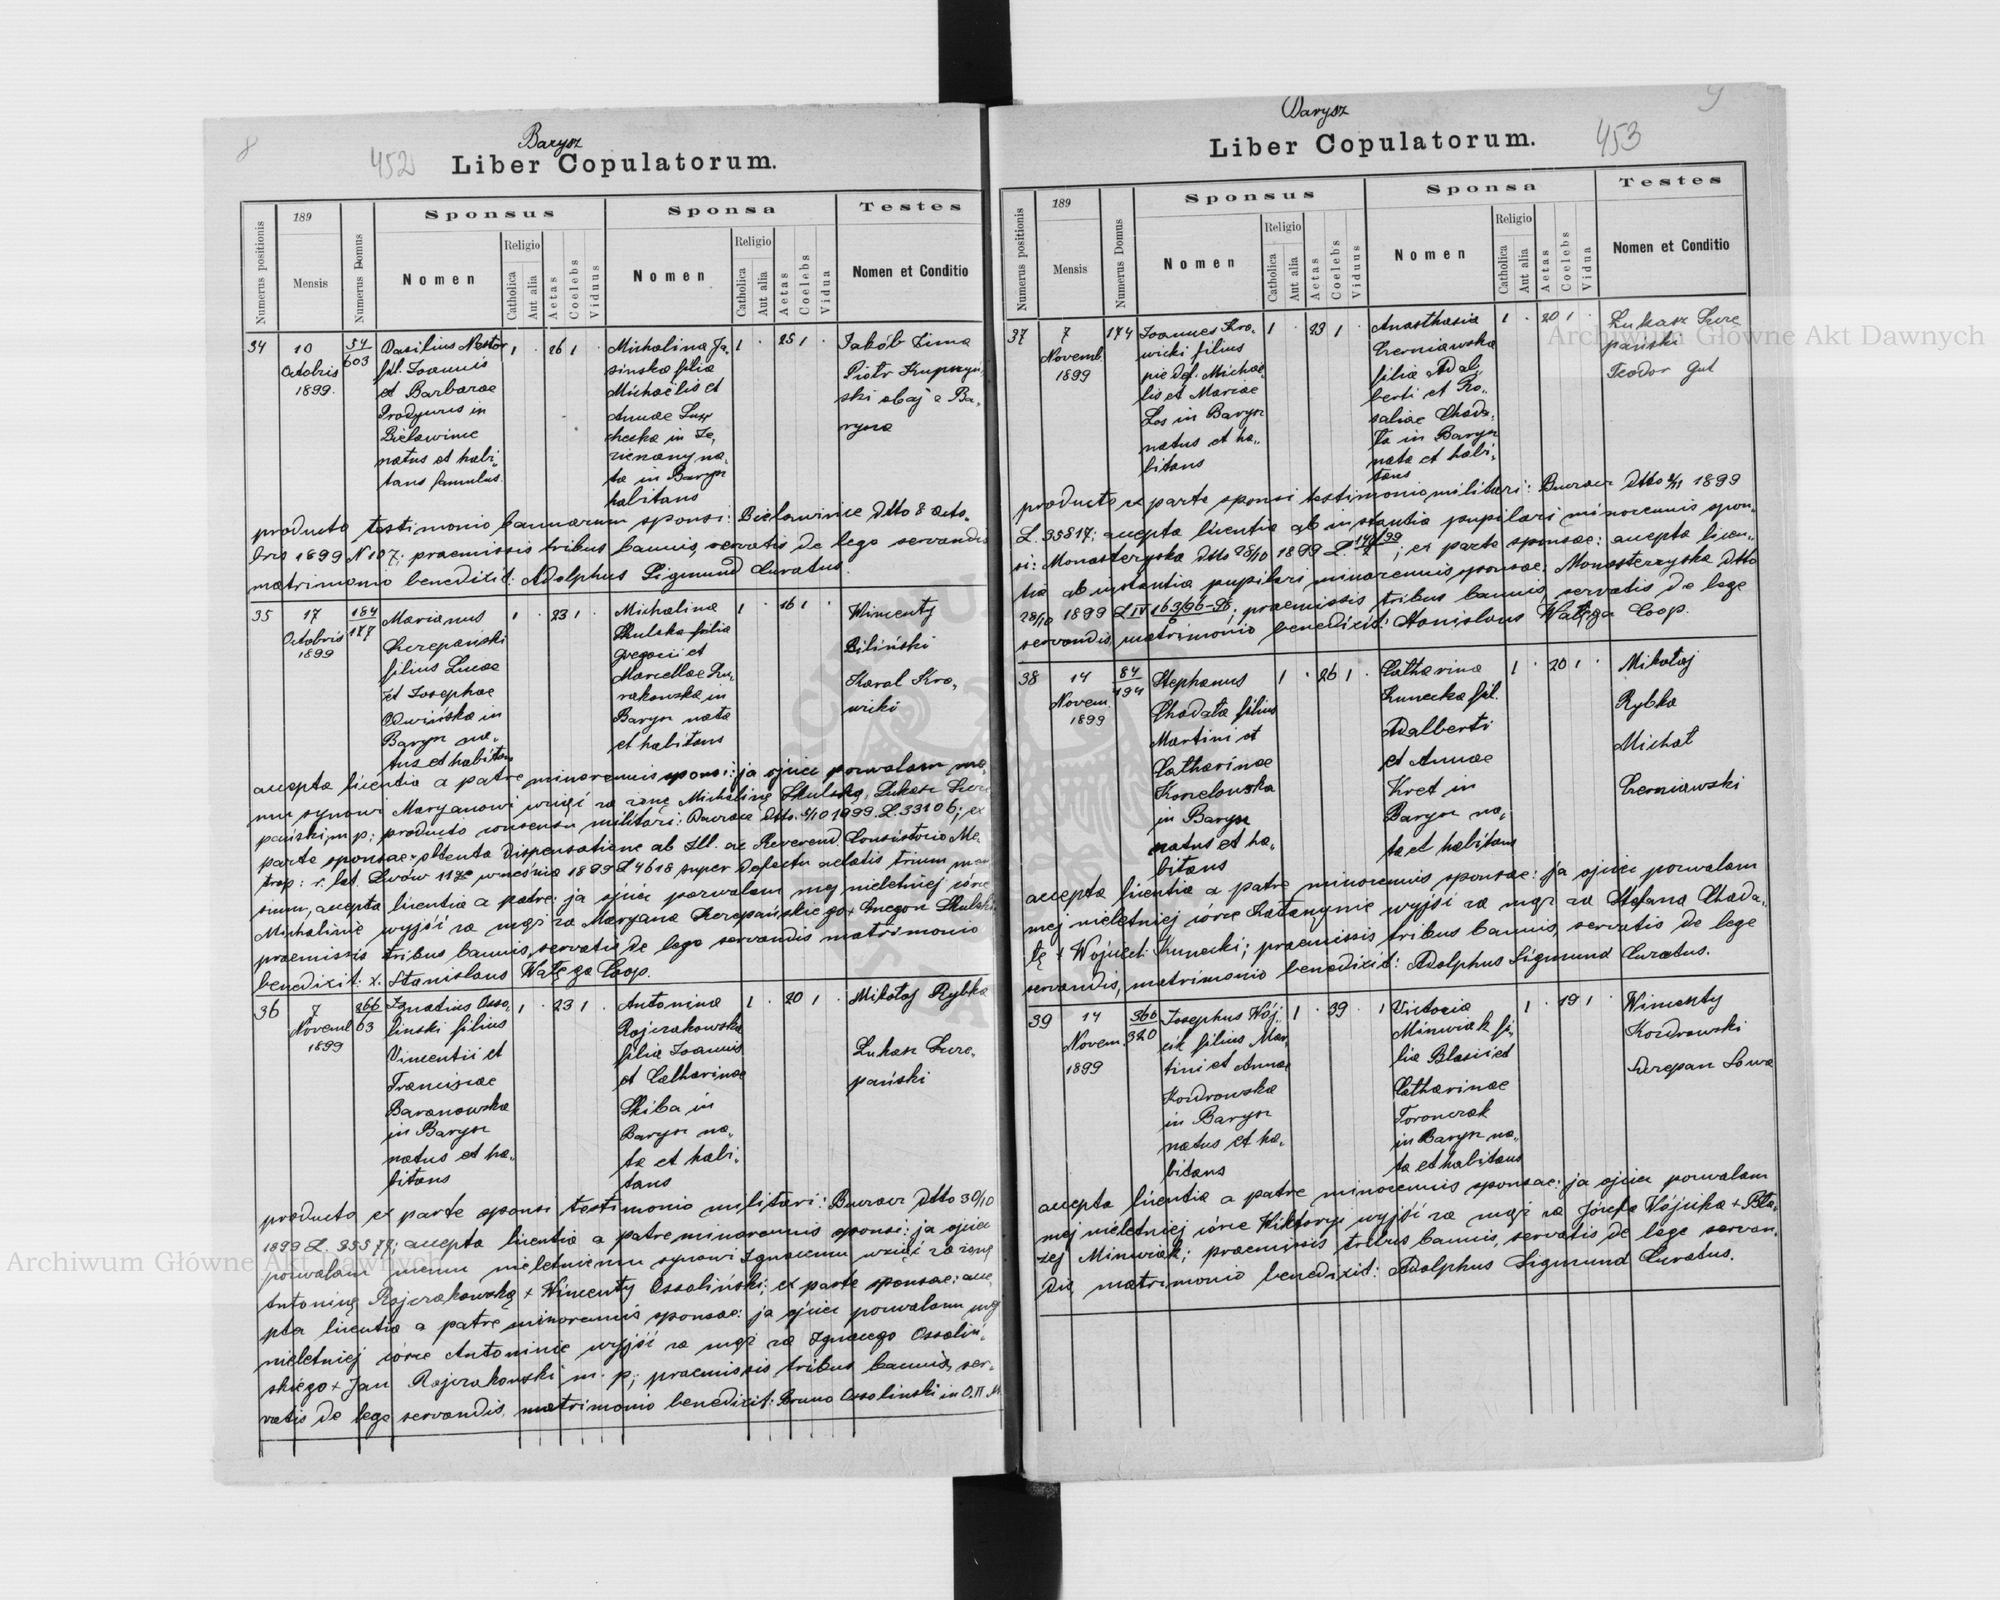 8
Barysz
452
Liber Copulatorum.
Numerus positionis
189
Mensis
Numerus Domus
Sponsus
Nomen
Religio
Catholica
Aut alia
Aetas
Coelebs
Viduus
Sponsa
Nomen
Religio
Catholica
Aut alia
Aetas
Coelebs
Vidua
Testes
Nomen et Conditio
34
10
Octobris
1899.
54
603
Basilius Nestor
fil. Joannis
et Barbarae
in
Bielawince
natus et habi„
tans famulus.
1 . 26 1
Michalina Ja„
sinska filia
Michaëlis et
Annae
in
na„
ta in Barysz
habitans
1 . 25 1
Jakób Zima
Piotr
ski obaj z Ba„
rysza
producto testimonio bannorum sponsi: Bielawince dtto 8 octo„
bris 1899 N 107; praemissis tribus bannis, servatis de lege servandis
matrimonio benedixit: Adolphus Sigmund Curatus.
35
17
Octobris
1899
184
177
Marianus
Szczepański
filius Lucae
et Josephae
in
Barysz na„
tus et habitans
1 . 23 1
Michalina
Skulska filia
Gregorii et
Marcellae Żu„
rakowska in
Barysz nata
et habitans
1 . 16 1
Wincenty
Biliński
Karol Kro„
wicki
accepta licentia a patre minorennis sponsi: ja ojciec pozwalam me„
mu synowi Maryanowi wziąć za żonę Michalinę Skulską, Łukasz Szcze„
pański, mp; producto consensu militari: Buczacz dtto. 5/10 1899. L. 33106; ex
parte sponsae: obtenta dispensatione ab Ill. ac Reverend. Consistorio Me„
trop: r. lat. Lwów 11go września 1899 L 4618 super defectu aetatis trium men„
sium, accepta licentia a patre: ja ojciec pozwalam mej nieletniej córce
Michalinie wyjść za mąż za Maryana Szczepańskiego + Gregor Skulski;
praemissis tribus bannis, servatis de lege servandis matrimonio
benedixit: X. Stanislaus Wałęga Coop.
36
7
Novemb
1899
266
63
Ignatius Osso„
linski filius
Vincentii et
Franciscae
Baranowska
in Barysz
natus et ha„
bitans
1 . 23 1
Antonina
Rajczakowska
filia Joannis
et Catharinae
Skiba in
Barysz na„
ta et habi„
tans
1 . 20 1
Mikołaj Rybka
Łukasz Szcze„
pański
producto ex parte sponsi testimonio militari: Buczacz dtto 30/10
1899 L. 35577; accepta licentia a patre minorennis sponsi: ja ojciec
pozwalam memu nieletniemu synowi Ignacemu wziąć za żonę
Antoninę Rajczakowską + Wincenty Ossoliński; ex parte sponsae: acce„
pta licentia a patre minorennis sponsae: ja ojciec pozwalam mej
nieletniej córce Antoninie wyjść za mąż za Ignacego Ossoliń„
skiego + Jan Rajczakowski m. p; praemissis tribus bannis, ser„
vatis de lege servandis, matrimonio benedixit: Bruno Ossolinski
9
Barysz
453
Liber Copulatorum.
Numerus positionis
189
Mensis
Numerus Domus
Sponsus
Nomen
Religio
Catholica
Aut alia
Aetas
Coelebs
Viduus
Sponsa
Nomen
Religio
Catholica
Aut alia
Aetas
Coelebs
Vidua
Testes
Nomen et Conditio
37
7
Novemb.
1899
174
Joannes Kro„
wicki filius
pie def. Michae„
lis et Mariae
Los in Barysz
natus et ha„
bitans
1 . 23 1
Anasthasia
Czerniawska
filia Adal„
berti et Ro„
saliae Chada„
ła in Barysz
nata et habi„
tans
1 . 20 1
Łukasz Szcze
pański
Teodor Gut
producto ex parte sponsi testimonio militari: Buczacz dtto 2/11 1899
L. 35817; accepta licentia ab instantia pupilari minorennis spon„
si: Monasterzyska dtto 28/10 1899 L. ; ex parte sponsae: accepta licen„
tia ab instantia pupilari minorennis sponsae: Monasterzyska dtto
28/10 1899 L IV 163/96; praemissis tribus bannis, servatis de lege
servandis, matrimonio benedixit: Stanislaus Wałęga Coop.
38
14
Novem.
1899
84
194
Stephanus
Chadała filius
Martini et
Catharinae
in Barysz
natus et ha„
bitans
1 . 26 1
Catharina
Kunecka fil.
Adalberti
et Annae
Kret in
Barysz na„
ta et habitans
1 . 20 1
Mikołaj
Rybka
Michał
Czerniawski
accepta licentia a patre minorennis sponsae: ja ojciec pozwalam
mej nieletniej córce Katarzynie wyjść za mąż za Stefana Chada„
łę + Wojciech Kunecki; praemissis tribus bannis, servatis de lege
servandis, matrimonio benedixit: Adolphus Sigmund Curatus.
39
14
Novem.
1899
366
320
Josephus Wój„
cik filius Mar„
tini et Annae
Kozdrowska
in Barysz
natus et ha„
bitans
1 . 39 . 1
Victoria
Minczak fi„
lia Blasii et
Catharinae
Toronczak
in Barysz na„
ta et habitans
1 . 19 1
Wincenty
Kozdrowski
Szczepan Sowa
accepta licentia a patre minorennis sponsae: ja ojciec pozwalam
mej nieletniej córce Wiktoryi wyjść za mąż za Józefa Wójcika + Bła„
żej Minczak; praemissis tribus bannis, servatis de lege servan„
dis, matrimonio benedixit: Adolphus Sigmund Curatus.
Archiwum Główne Akt Dawnych
Archiwum Główne Akt Dawnych